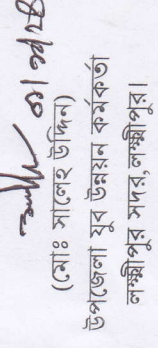 (মোঃ সালেহ উদ্দিন)
উপজেলা যুব উন্নয়ন কর্মকর্তা
লক্ষ্মীপুর সদর, লক্ষ্মীপুর।